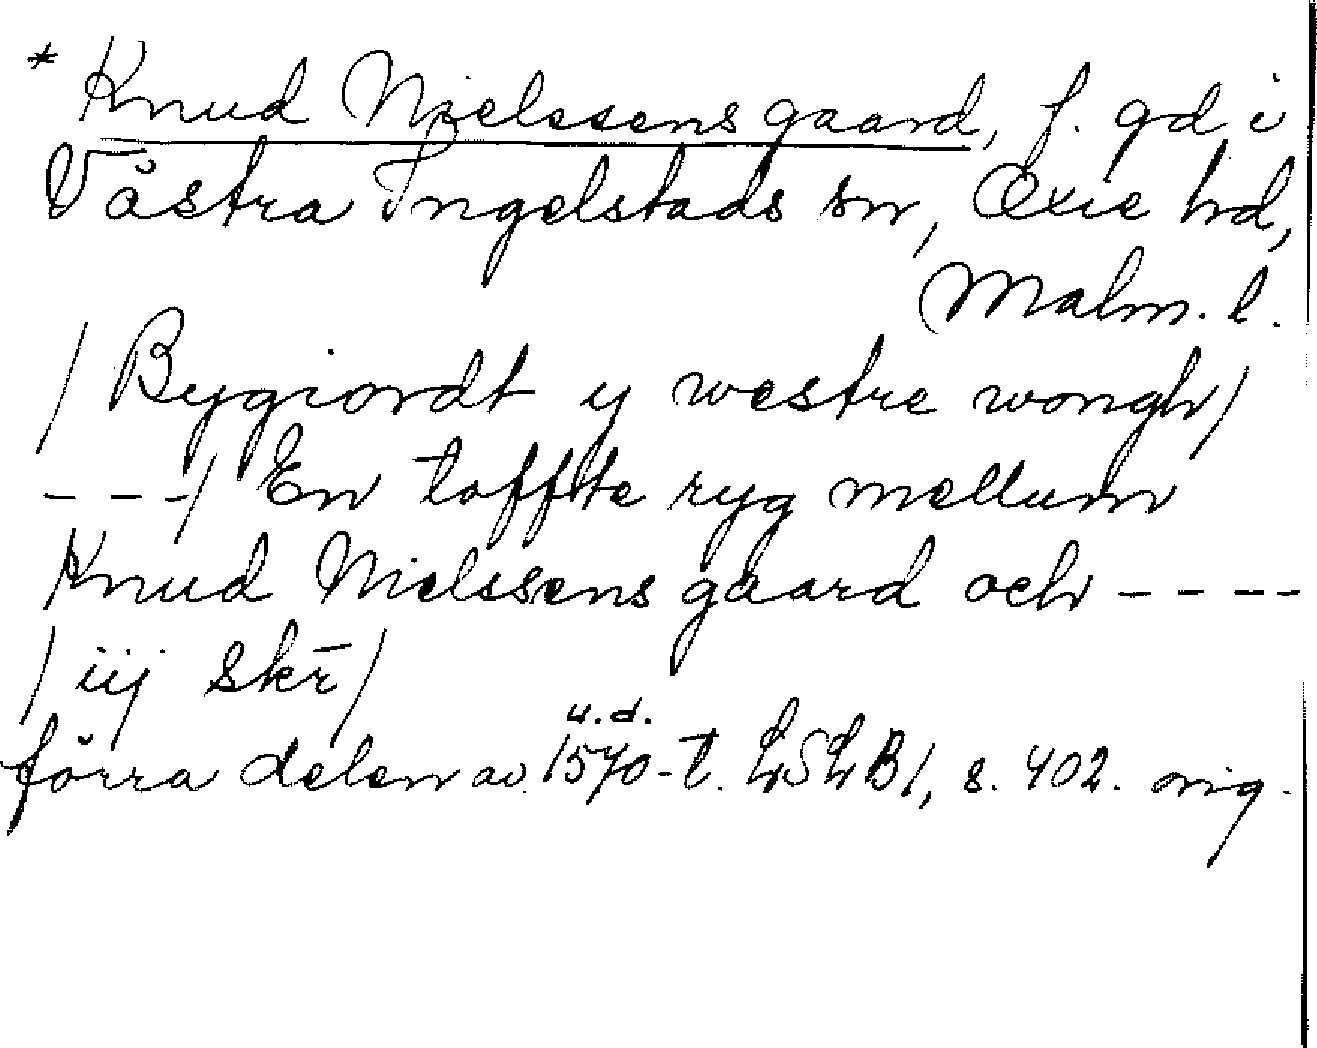 * Knud Nielssens gaard, f. gd i
Västra Ingelstads sn, Oxie hd,
Malm. l.
/ Bygiordt y westre wongh/
- - -/ En toffte ryg mellum
Knud Nielssens gaard och - - - -
/ iij skr̄ /
u.d.
förra delen av 1570-t. LSLB1, s. 402. orig.